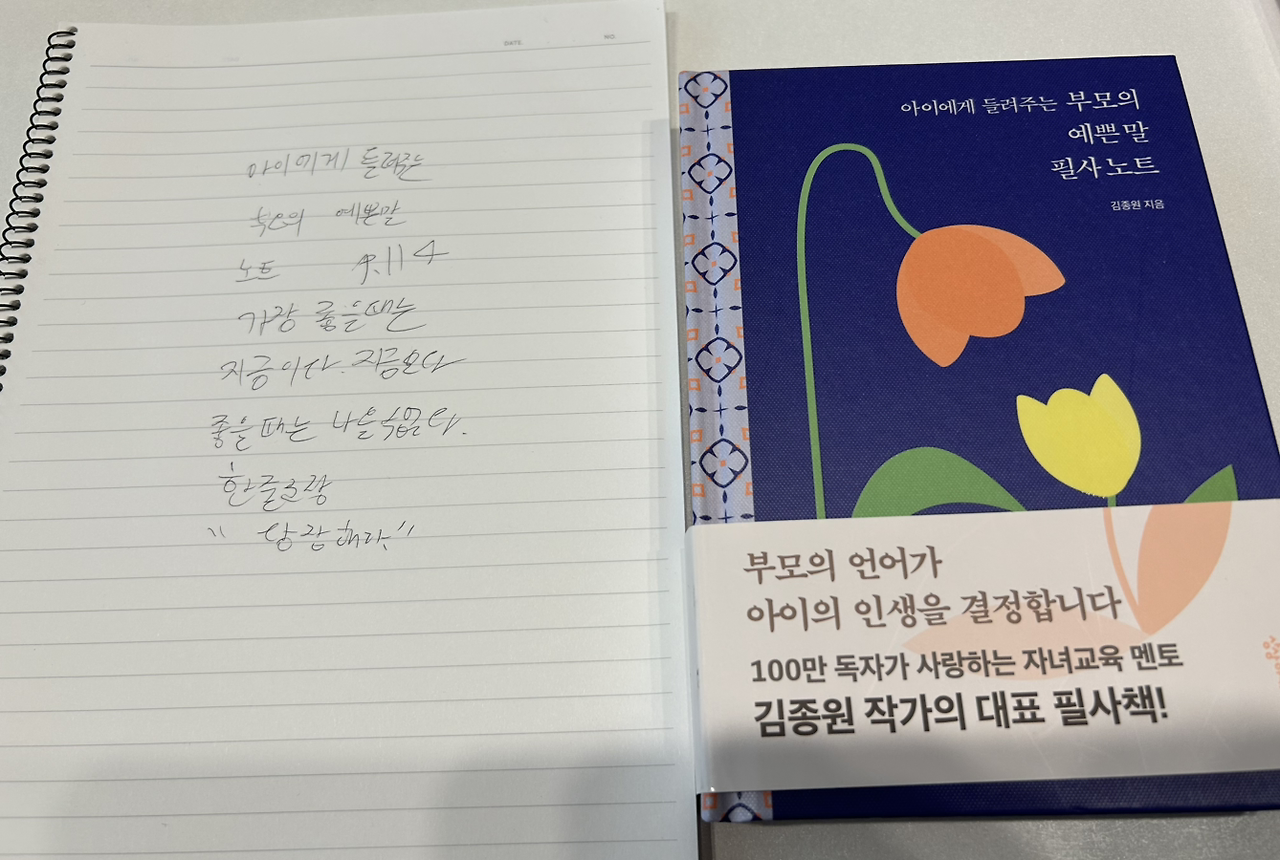 DATE. NO.
아이에게 들려주는
부모의 예쁜말
노트 P.114
가장 좋을때는
지금이다. 지금보다
좋을때는 나을 없다.
한글사랑
" 당장해라."
아이에게 들려주는 부모의
예쁜 말
필사 노트
김종원 지음
부모의 언어가
아이의 인생을 결정합니다
100만 독자가 사랑하는 자녀교육 멘토
김종원 작가의 대표 필사책!